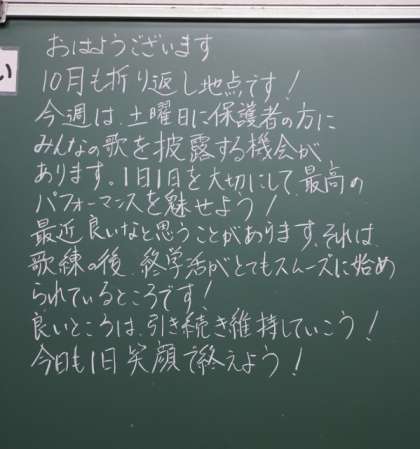 い
おはようございます
10月も折り返し地点です！
今週は、土曜日に保護者の方に
みんなの歌を披露する機会が
あります。1日1日を大切にして、最高の
パフォーマンスを魅せよう！
最近良いなと思うことがあります、それは、
歌練の後、終学活がとてもスムーズに始め
られているところです！
良いところは、引き続き維持していこう！
今日も1日笑顔で終えよう！